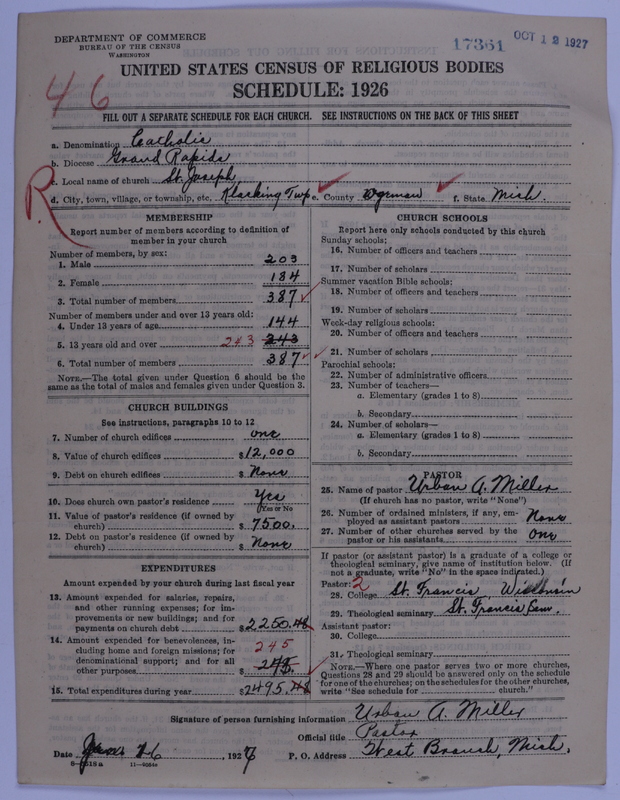 DEPARTMENT OF COMMERCE
BUREAU OF THE CENSUS
WASHINGTON
17361
OCT 12 1927
UNITED STATES CENSUS OF RELIGIOUS BODIES
SCHEDULE: 1926
46
FILL OUT A SEPARATE SCHEDULE FOR EACH CHURCH. SEE INSTRUCTIONS ON THE BACK OF THIS SHEET
R
a. Denomination Catholic
b. Diocese Grand Rapids
c. Local name of church St. Joseph
d. City, town, village, or township, etc. Klacking Twp e. County Ogemaw f. State Mich.
MEMBERSHIP
Report number of members according to definition of
member in your church
Number of members, by sex:
1. Male 203
2. Female 184
3. Total number of members 387
Number of members under and over 13 years old:
4. Under 13 years of age 144
5. 13 years old and over 243 243
6. Total number of members 387
NOTE.—The total given under Question 6 should be the
same as the total of males and females given under Question 3.
CHURCH BUILDINGS
See instructions, paragraphs 10 to 12
7. Number of church edifices one
8. Value of church edifices $12,000
9. Debt on church edifices $ None
10. Does church own pastor's residence Yes
Yes or No
11. Value of pastor's residence (if owned by
church) $ 7500.
12. Debt on pastor's residence (if owned by
church) $ None
EXPENDITURES
Amount expended by your church during last fiscal year
13. Amount expended for salaries, repairs,
and other running expenses; for im-
provements or new buildings; and for
payments on church debt $2250.48
14. Amount expended for benevolences, in-
cluding home and foreign missions; for
denominational support; and for all
other purposes $ 245. 245
15. Total expenditures during year $2495.48
CHURCH SCHOOLS
Report here only schools conducted by this church
Sunday schools:
16. Number of officers and teachers
17. Number of scholars
Summer vacation Bible schools:
18. Number of officers and teachers
19. Number of scholars
Week-day religious schools:
20. Number of officers and teachers
21. Number of scholars
Parochial schools:
22. Number of administrative officers
23. Number of teachers—
a. Elementary (grades 1 to 8)
b. Secondary
24. Number of scholars—
a. Elementary (grades 1 to 8)
b. Secondary
PASTOR
25. Name of pastor Urban A. Miller
(If church has no pastor, write "None")
26. Number of ordained ministers, if any, em-
ployed as assistant pastors None
27. Number of other churches served by the
pastor or his assistants one
If pastor (or assistant pastor) is a graduate of a college or
theological seminary, give name of institution below. (If
not a graduate, write "No" in the space indicated.)
Pastor: 2
28. College St. Francis Wisconsin
29. Theological seminary St. Francis Sem.
Assistant pastor:
30. College
31. Theological seminary
NOTE.—Where one pastor serves two or more churches,
Questions 28 and 29 should be answered only on the schedule
for one of the churches; on the schedules for the other churches,
write "See schedule for church."
Signature of person furnishing information Urban A. Miller
Official title Pastor
Date Jan. 26, 1927 P. O. Address West Branch, Mich.
11—9064a